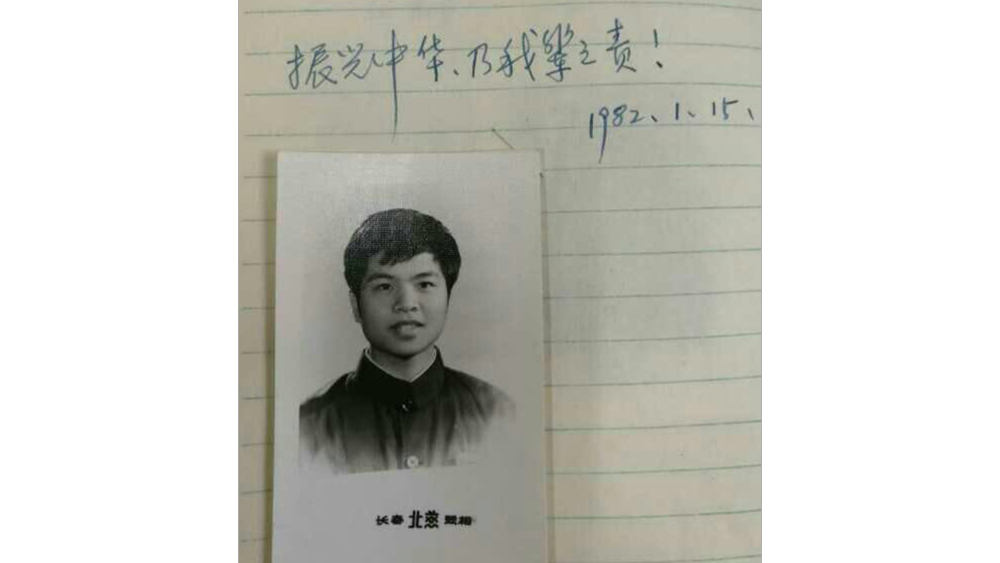 振兴中华、乃我辈之责！
1982、1、15、
长春北燕照相